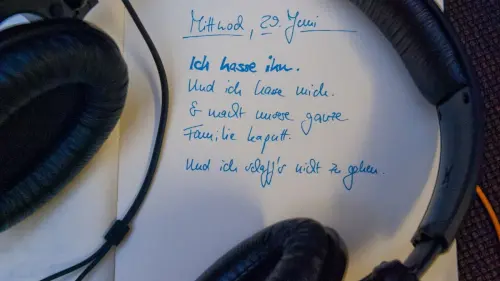 Mittwoch, 29. Juni
Ich hasse ihn.
Und ich hasse mich.
Er macht unsere ganze
Familie kaputt.
Und ich schaff's nicht zu gehen.